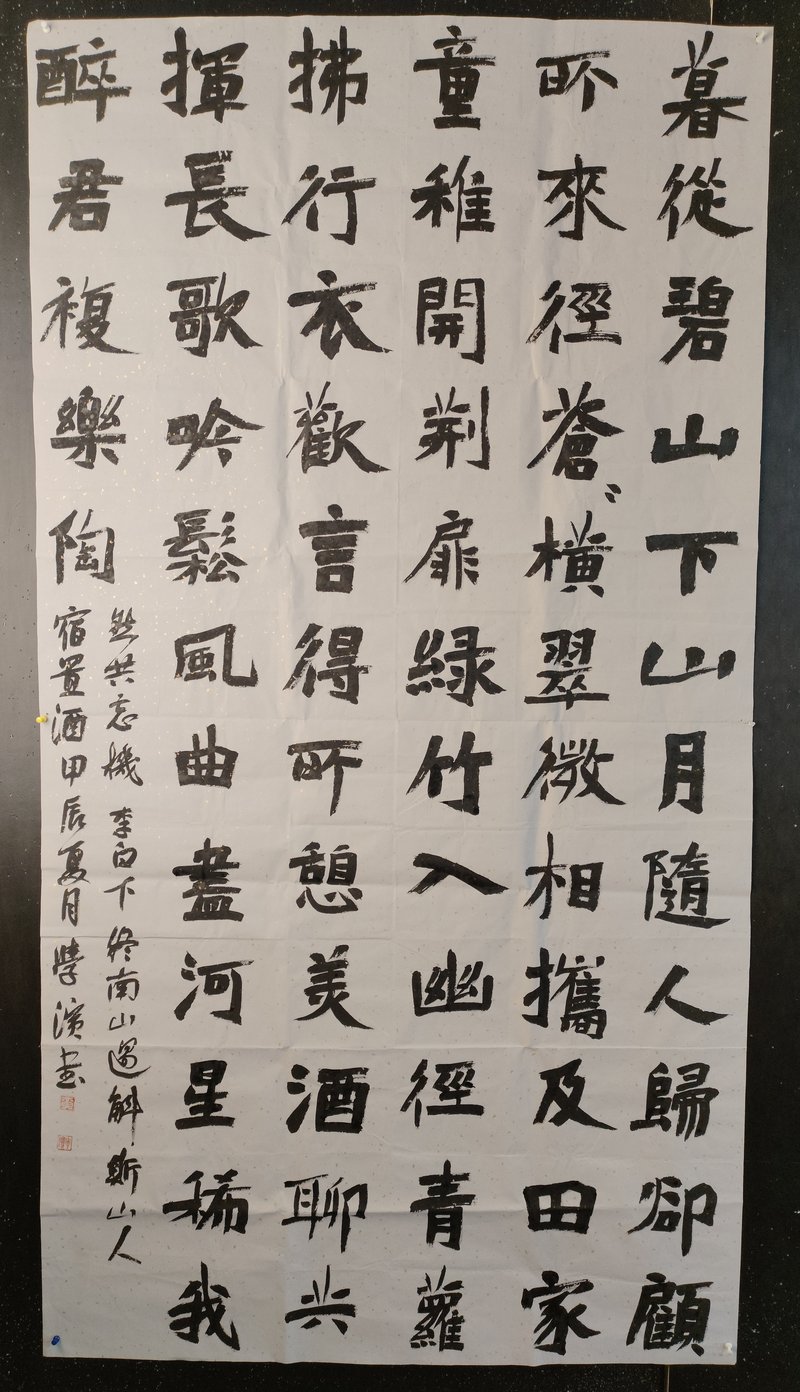 暮從碧山下山月隨人歸卻顧
所來徑蒼〻橫翠微相攜及田家
童稚開荊扉綠竹入幽徑青蘿
拂行衣歡言得所憩美酒聊共
揮長歌吟鬆風曲盡河星稀我
醉君複樂陶
然共忘機 李白下終南山過斛斯山人
宿置酒甲辰夏月學演書